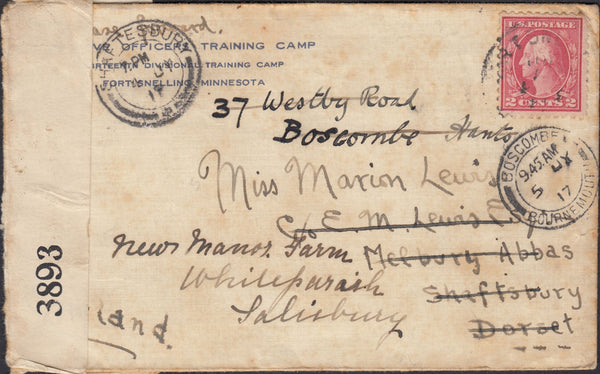 SHAFTESBURY
PM
JU
17
VE OFFICERS TRAINING CAMP
RTEENTH DIVISIONAL TRAINING CAMP
FORT SNELLING, MINNESOTA
U.S. POSTAGE
2 CENTS 2
37 Westby Road
Boscombe Hants
BOSCOMBE
9.45 AM
5 JY
17
BOURNEMOUTH
Miss Marion Lewis
c/o E. M. Lewis Esq
New Manor Farm Melbury Abbas
Whiteparish Shaftsbury
Salisbury Dorset
land.
3893